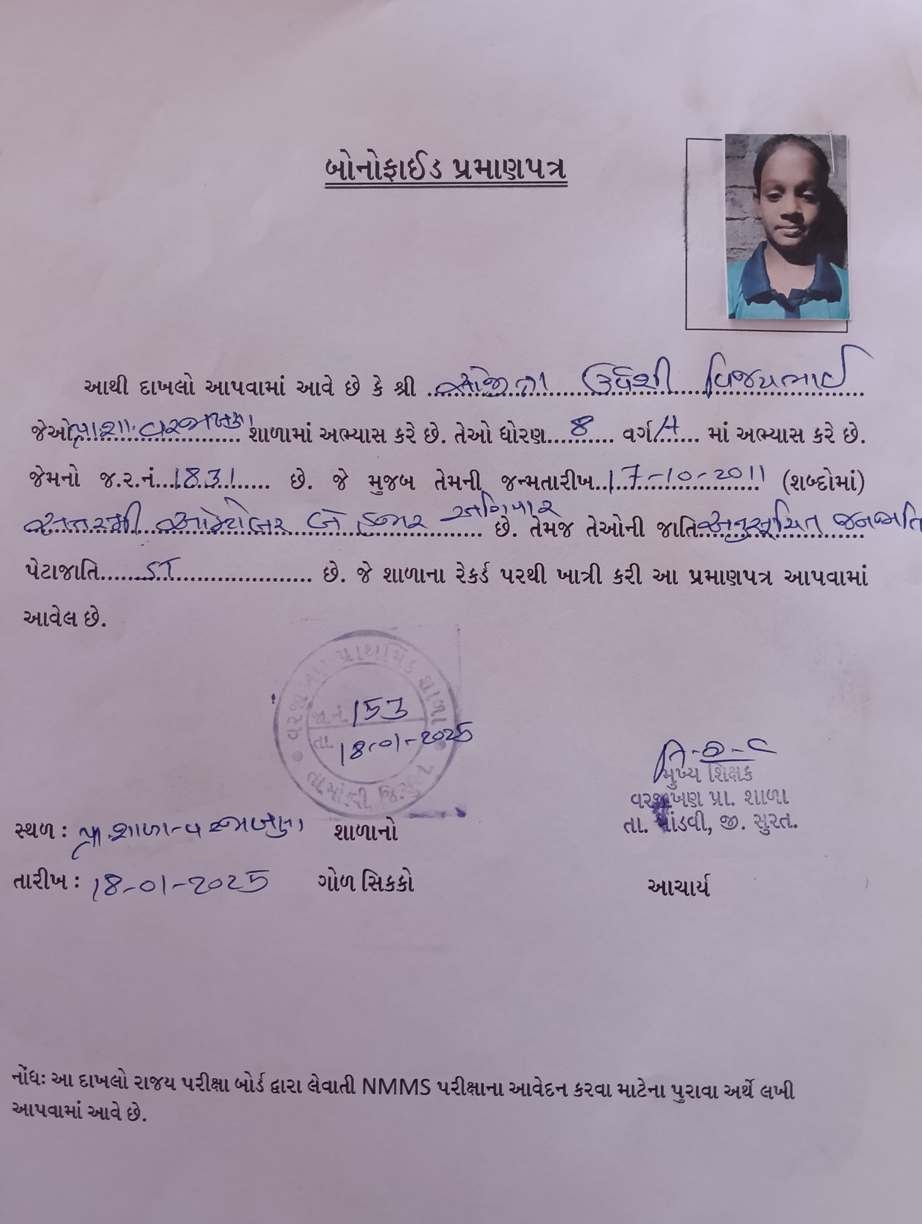 બોનોફાઈડ પ્રમાણપત્ર
આથી દાખલો આપવામાં આવે છે કે શ્રી ........ ઉર્વશી વિજયભાઈ
જેઓ પ્રા.શા. વરજાખણ શાળામાં અભ્યાસ કરે છે. તેઓ ધોરણ....8.... વર્ગ A.... માં અભ્યાસ કરે છે.
જેમનો જ.ર.નં...1831...... છે. જે મુજબ તેમની જન્મતારીખ..17-10-2011 (શબ્દોમાં)
સત્તરમી ઓક્ટોબર બે હજાર અગિયાર છે. તેમજ તેઓની જાતિ અનુસૂચિત જનજાતિ
પેટાજાતિ......ST.................... છે. જે શાળાના રેકર્ડ પરથી ખાત્રી કરી આ પ્રમાણપત્ર આપવામાં
આવેલ છે.
વરજાખણ પ્રાથમિક શાળા
જા.નં. 153
તા. 18-01-2025
તા.માંડવી, જિ.સુરત
મુખ્ય શિક્ષક
વરજાખણ પ્રા. શાળા
તા. માંડવી, જી. સુરત.
સ્થળ : પ્રા. શાળા વરજાખણ શાળાનો
તારીખ : 18-01-2025 ગોળ સિકકો આચાર્ય
નોંધઃ આ દાખલો રાજય પરીક્ષા બોર્ડ દ્વારા લેવાતી NMMS પરીક્ષાના આવેદન કરવા માટેના પુરાવા અર્થે લખી
આપવામાં આવે છે.